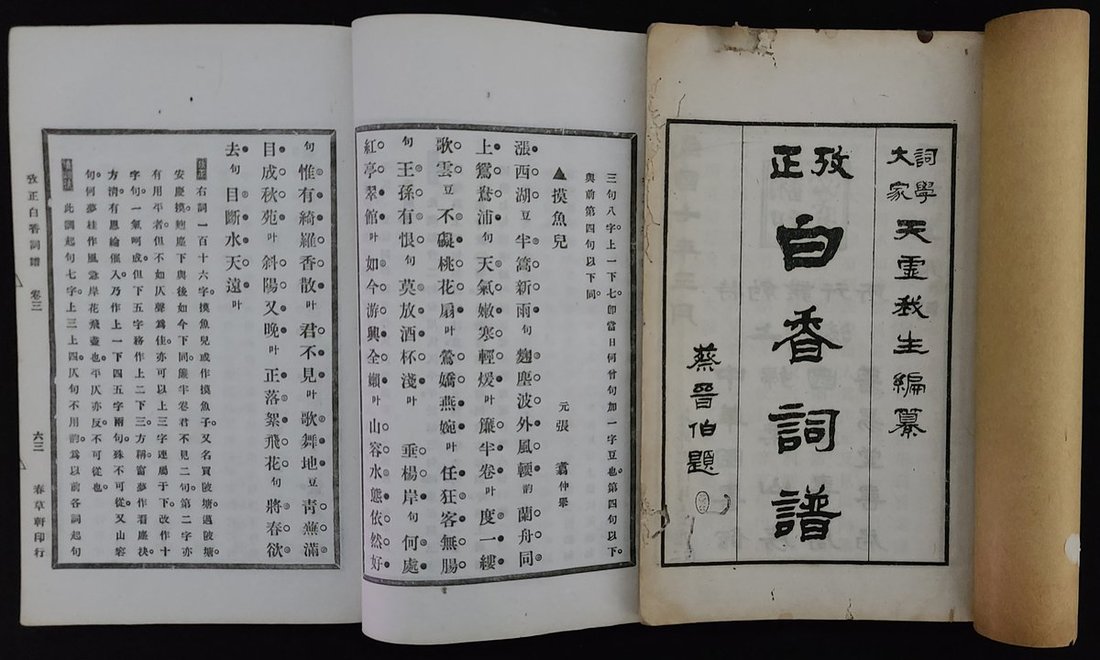 詞學大家 天虛我生編纂
攷正白香詞譜
蔡晉伯題
三句八字上一下七卽當日何曾句加一字豆也。第四句以下。
與前第四句以下同。
▲摸魚兒 元張翥仲舉
漲西湖豆半篙新雨句麴塵波外風輭韵蘭舟同
上鴛鴦浦句天氣嫩寒輕煖叶簾半卷叶度一縷
歌雲豆不礙桃花扇叶鶯嬌燕婉叶任狂客無腸
句王孫有恨句莫放酒杯淺叶 垂楊岸句何處
紅亭翠館叶如今游興全嬾叶山容水態依然好
句惟有綺羅香散叶君不見叶歌舞地豆靑蕪滿
目成秋苑叶斜陽又晚叶正落絮飛花句將春欲
去句目斷水天遠叶
右詞一百十六字摸魚兒或作摸魚子又名買陂塘邁陂塘
安慶摸麴塵下與後如今下同簾半卷君不見二句第二字亦
有用平者。但不如仄聲爲佳亦可以上三字連屬于下。改作十
字句。一氣呵成。但下五字務作上二下三。方稱窗夢作看塵抉
方淸有恩綸催入。乃作上一下四五字兩句。殊不可從。又山容
句。何夢桂作風急岸花飛盡也。平仄亦反。不可從也。
此調起句七字。上三上四。仄句不用韵。爲以前各詞起句
攷正白香詞譜 卷三 六三 春草軒印行